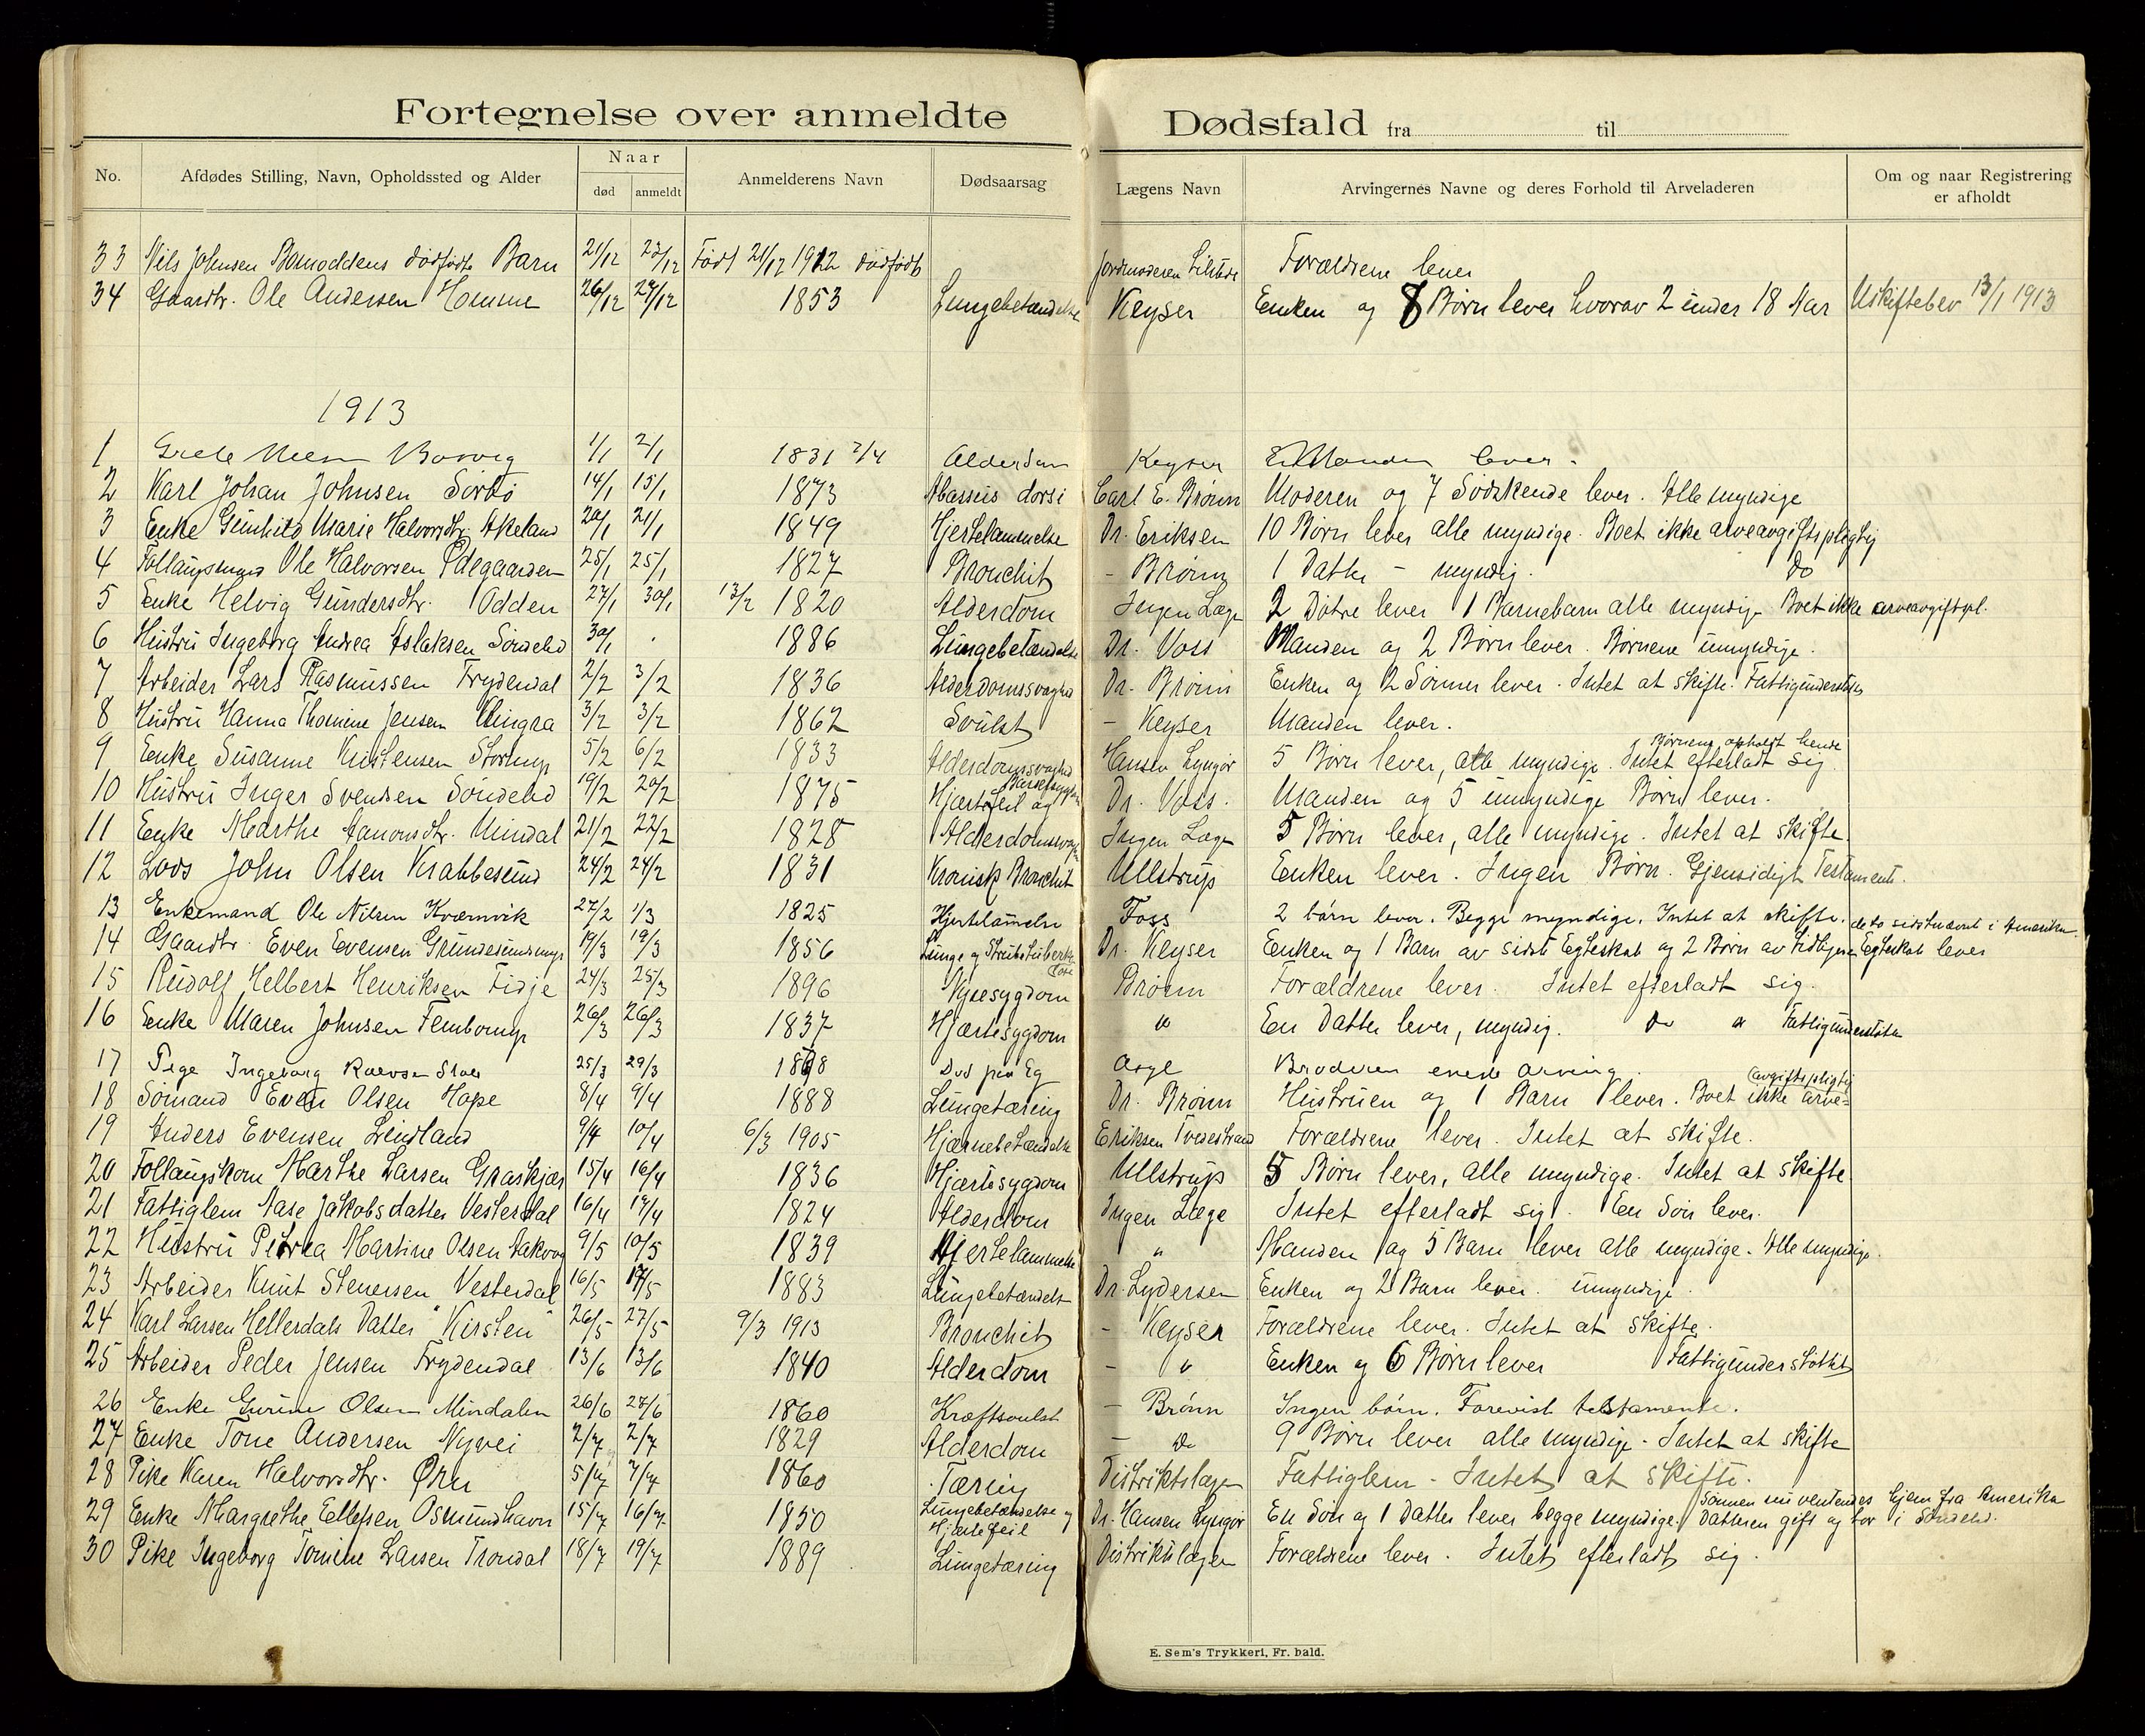 Fortegnelse over anmeldte Dødsfald fra til
No. Afdødes Stilling, Navn, Opholdssted og Alder Naar død anmeldt Anmelderens Navn Dødsaarsag Lægens Navn Arvingernes Navne og deres Forhold til Arveladeren Om og naar Registrering er afholdt
33 Nils Johnsen dødfødte Barn 21/12 23/12 Født 21/12 1912 dødfødt Jordmoderen Forældrene lever
34 Gaardbr. Ole Andersen Homme 26/12 27/12 1853 Lungebetændelse Keyser Enken og 8 Børn lever hvorav 2 under 18 Aar Uskiftebev 13/1 1913
1913
1 Grete 1/1 2/1 1831 2/4 Alderdom Keyser Manden lever.
2 Karl Johan Johnsen Sørbø 14/1 15/1 1873 dorsi Carl E. Brønn Moderen og 7 Sødskende lever. Alle myndige
3 Enke Gunhild Marie Halvorsdtr. Akeland 20/1 21/1 1849 Hjertelammelse Dr. Eriksen 10 Børn lever alle myndige. Boet ikke arveavgiftspligtig
4 Føllaugsmand Ole Halvorsen Ødegaarden 25/1 25/1 1827 Bronchit - Brønn 1 Datter - myndig. Do
5 Enke Helvig Gundersdtr. Odden 27/1 30/1 13/2 1820 Alderdom Ingen Læge 2 Døtre lever 1 Barnebarn alle myndige Boet ikke arveavgiftspl.
6 Hustru Ingeborg Andrea Aslaksen Søndeled 30/1 . 1886 Lungebetændelse Dr. Voss Manden og 2 Børn lever. Børnene umyndige.
7 Arbeider Lars Rasmussen Frydendal 2/2 3/2 1836 Alderdomssvaghed Dr. Brønn Enken og 2 Sønner lever. Intet at skifte. Fattigunderstøttet
8 Hustru Hanna Thomine Jensen 3/2 3/2 1862 Svulst - Keyser Manden lever.
9 Enke Susanne Kristensen 5/2 6/2 1833 Alderdomssvaghed Hansen Lyngør 5 Børn lever, alle myndige. Intet efterladt sig. Børnene opholdt hende
10 Hustru Inger Svendsen Søndeled 19/2 20/2 1875 Hjertefeil og Dr. Voss. Manden og 5 umyndige Børn lever.
11 Enke Marthe Aanonsdtr. Mindal 21/2 22/2 1828 Ingen Læge 5 Børn lever, alle myndige. Intet at skifte
12 Lods John Olsen Krabbesund 24/2 24/2 1831 Kronisk Bronchit Ullstrup Enken lever. Ingen Børn. Gjensidigt Testament.
13 Enkemand Ole Nilsen Kvernvik 27/2 1/3 1825 Hjertelammelse Foss 2 børn lever. Begge myndige. Intet at skifte. i Amerika.
14 Gaardbr. Even Evensen 19/3 19/3 1856 Lunge og Strubetuberkulose Dr. Keyser Enken og 1 Barn av sidste Egteskab og 2 Børn av tidligere Egteskab lever
15 Rudolf Helbert Henriksen Fidje 24/3 25/3 1896 Nyresygdom Brønn Forældrene lever. Intet efterladt sig.
16 Enke Maren Johnsen 26/3 26/3 1837 Hjertesygdom " En Datter lever, myndig. Do " Fattigunderstøttet
17 Pige Ingeborg 25/3 29/3 Broderen eneste arving.
18 Sømand Even Olsen Hope 8/4 9/4 1888 Lungetæring Dr. Brønn Hustruen og 1 Barn lever. Boet ikke arve=avgiftspligtig
19 Anders Evensen Leidland 9/4 10/4 6/3 1905 Hjernebetændelse Eriksen Tvedestrand Forældrene lever. Intet at skifte.
20 Føllaugskone Marthe Larsen Graskjær 15/4 16/4 1836 Hjertesygdom Ullstrup 5 Børn lever, alle myndige. Intet at skifte.
21 Fattiglem Aase Jakobsdatter Vesterdal 16/4 17/4 1824 Alderdom Ingen Læge Intet efterladt sig. En Søn lever.
22 Hustru Petrea Martine Olsen 9/5 10/5 1839 Hjertelammelse " Manden og 5 Barn lever alle myndige. Alle myndige.
23 Arbeider Knut Stenersen Vesterdal 16/5 17/5 1883 Lungebetændelse Dr. Lydersen Enken og 2 Barn lever. umyndige.
24 Karl Larsen Hellerdals Datter "Kirsten" 26/5 27/5 9/3 1913 Bronchit - Keyser Forældrene lever. Intet at skifte.
25 Arbeider Peder Jensen Frydendal 13/6 13/6 1840 Alderdom - " Enken og 6 Børn lever Fattigunderstøttet
26 Enke Gurine Olsen Mindalen 26/6 27/6 1860 Kræftsvulst - Brønn Ingen børn. Forevist testamente.
27 Enke Tone Andersen Nyvei 2/7 2/7 1829 Alderdom - Do 9 Børn lever alle myndige. Intet at skifte
28 Pike Karen Halvorsdtr. Øren 5/7 7/7 1860 Tæring Distriktslægen Fattiglem - Intet at skifte.
29 Enke Margrethe Ellefsen Osmundhavn 15/7 16/7 1850 Lungebetændelse og Hjertefeil Dr. Hansen Lyngør En Søn og 1 Datter lever begge myndige. Sønnen nu ventendes hjem fra Amerika Datteren gift og bor i Søndeled.
30 Pike Ingeborg Tomine Larsen Trondal 18/7 19/7 1889 Lungetæring Distriktslægen Forældrene lever. Intet efterladt sig.
E. Sem's Trykkeri, Fr. hald.